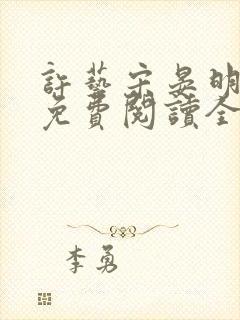 許藝宋晏明
免費閱讀全
李勇